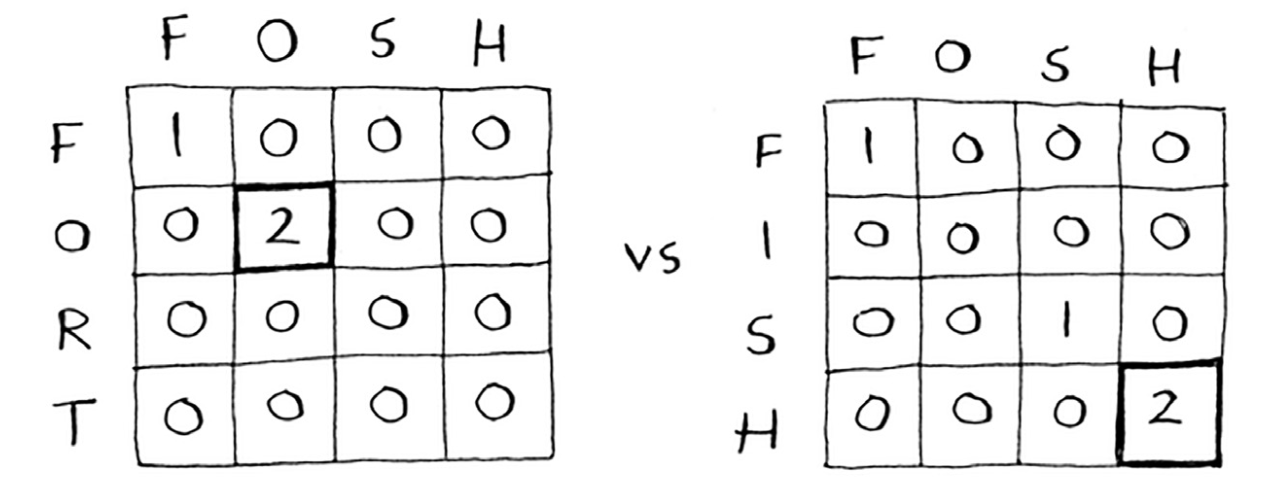 F O S H
F 1 0 0 0
O 0 2 0 0
R 0 0 0 0
T 0 0 0 0
vs
F O S H
F 1 0 0 0
I 0 0 0 0
S 0 0 1 0
H 0 0 0 2